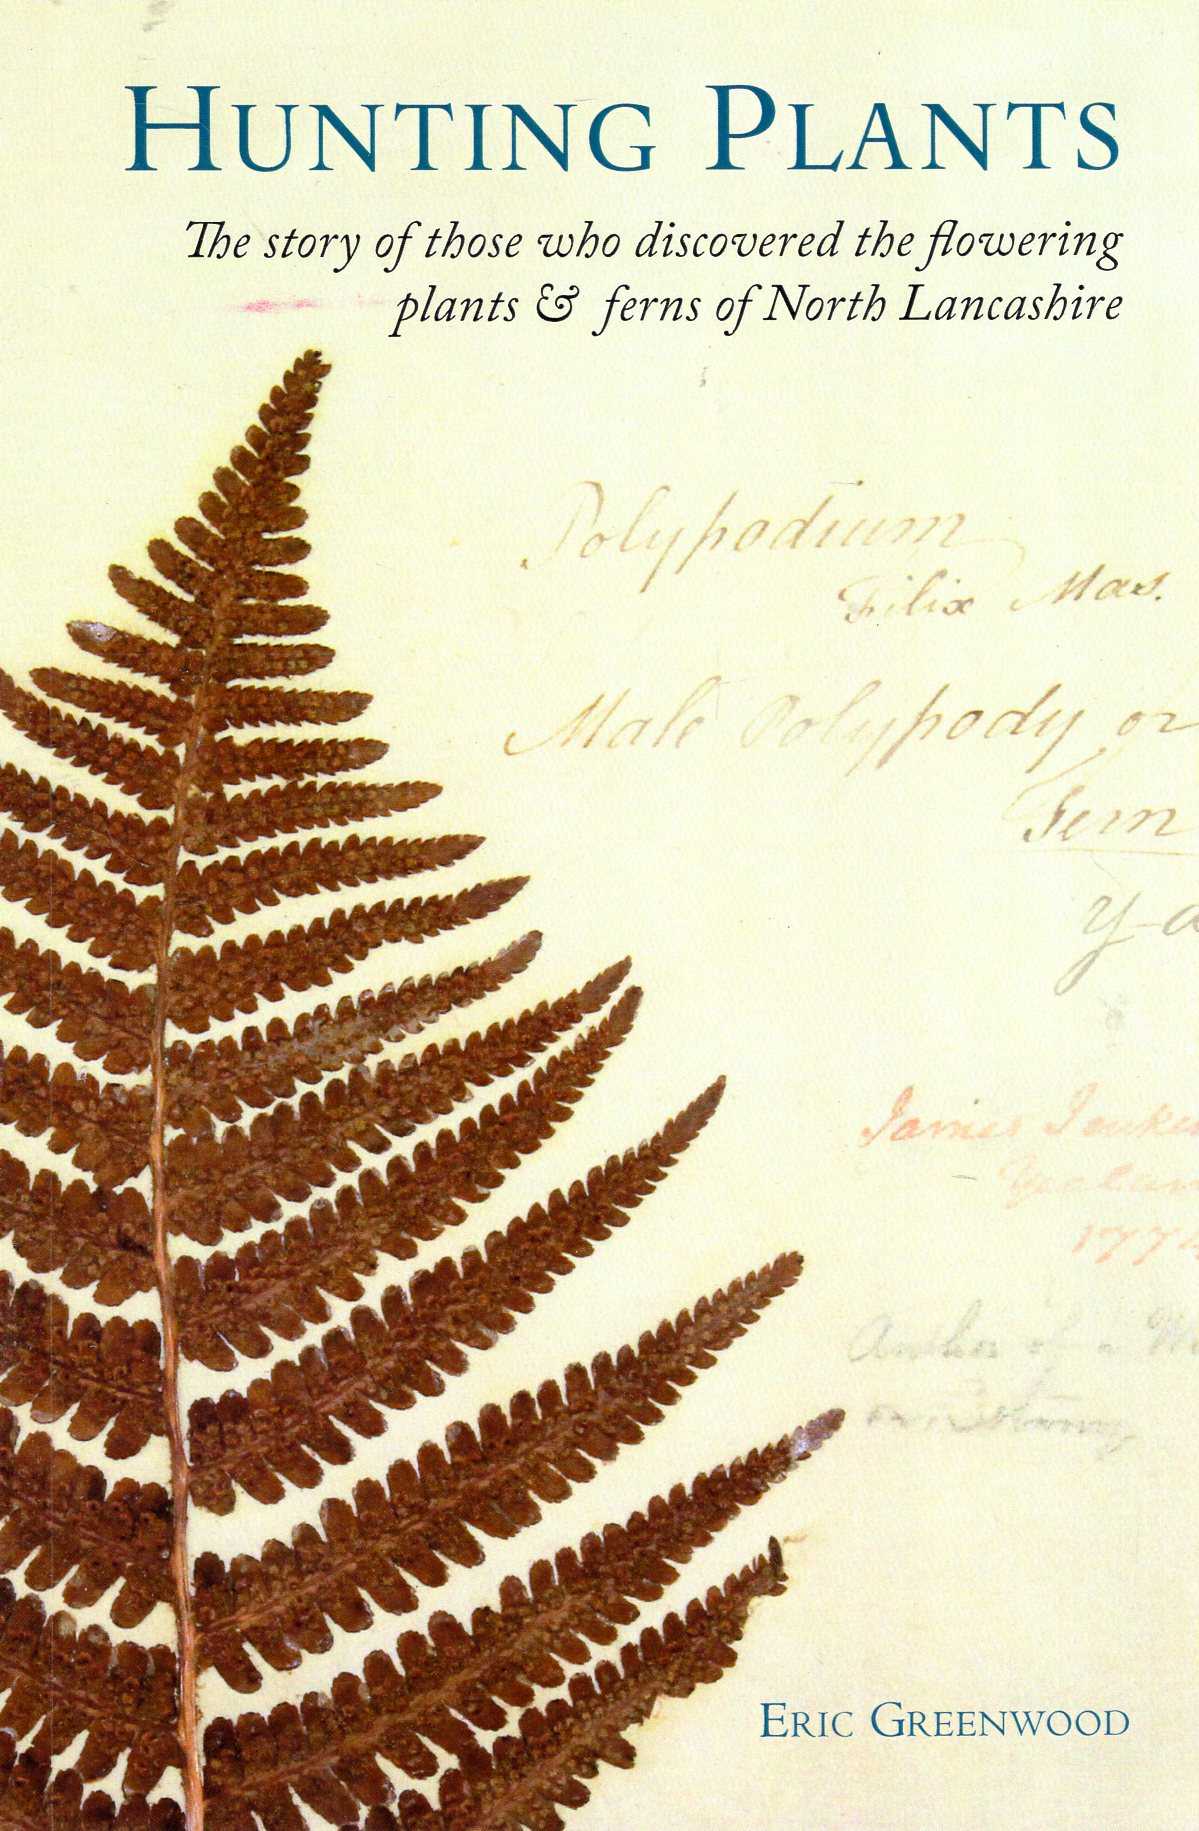 HUNTING PLANTS
The story of those who discovered the flowering
plants & ferns of North Lancashire
Polypodium
Filix Mas.
Male Polypody or
Fern
James
177
ERIC GREENWOOD